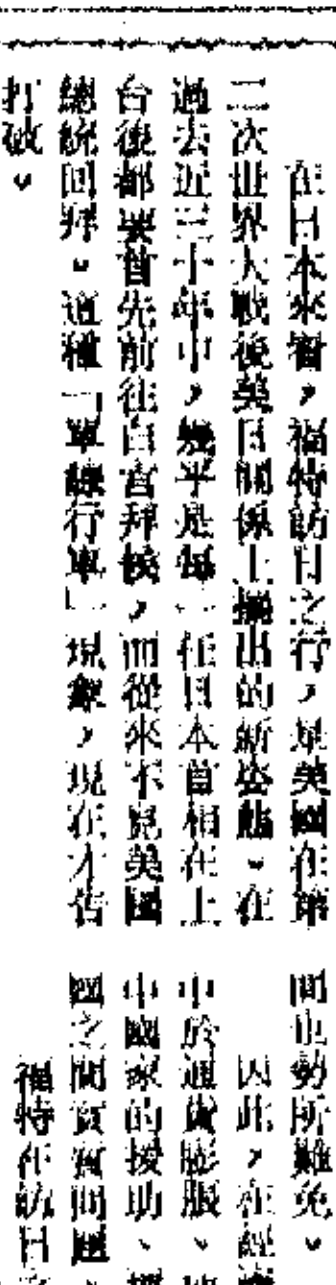 在日本來看，福特訪日之行，是美國在第
二次世界大戰後美日關係上擺出的新姿態。在
過去近三十年中，幾乎是每一任日本首相在上
台後都要首先前往白宮拜候，而從來不見美國
總統回拜。這種「單線行車」現象，現在才告
打破。
間也勢所難免。
因此，在經
中於通貨膨脹、
中國家的援助、
國之間貿易問題
福特在訪日